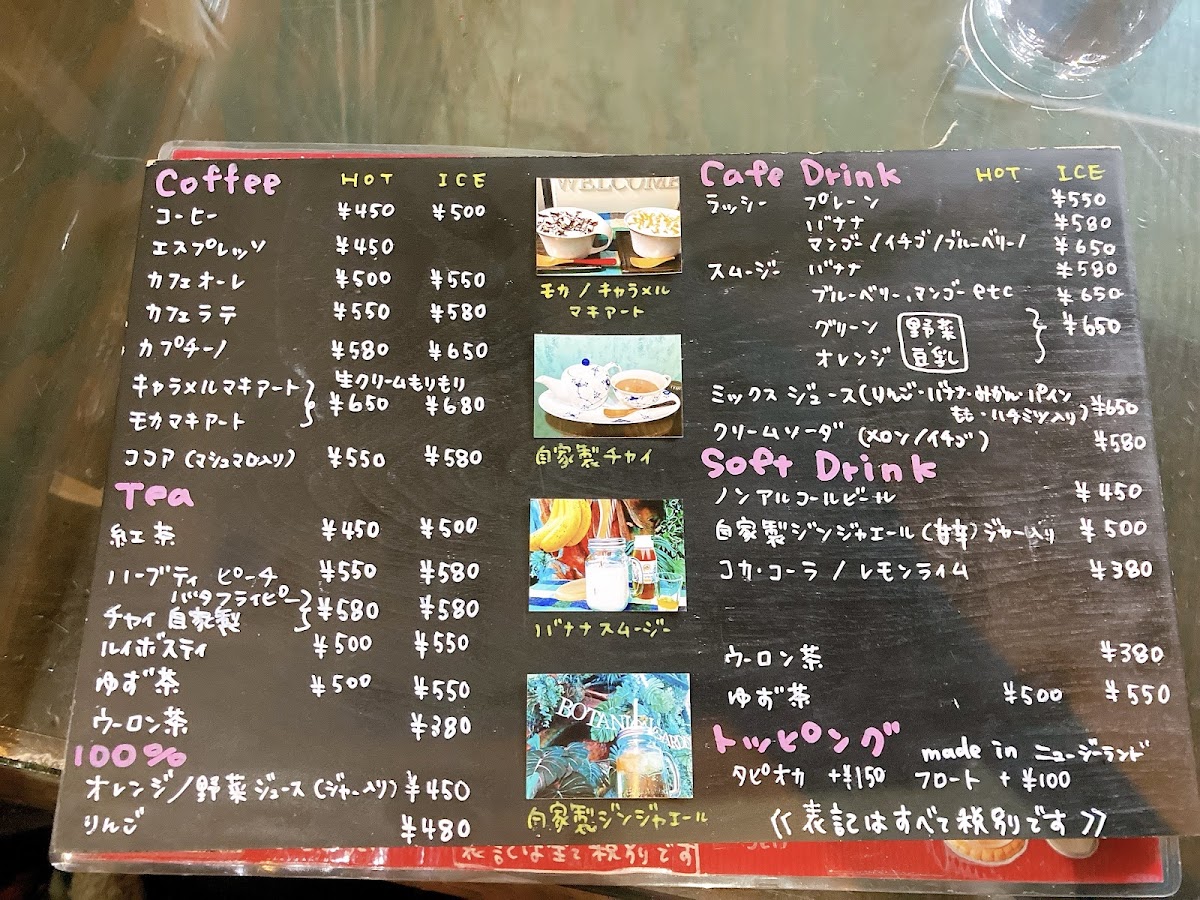 Coffee HOT ICE
コーヒー ¥450 ¥500
エスプレッソ ¥450
カフェオーレ ¥500 ¥550
カフェラテ ¥550 ¥580
カプチーノ ¥580 ¥650
キャラメルマキアート 生クリームもりもり
モカマキアート ¥650 ¥680
ココア(マシュマロ入り) ¥550 ¥580
Tea
紅茶 ¥450 ¥500
ハーブティ ピーチ ¥550 ¥580
バタフライピー
チャイ 自家製 ¥580 ¥580
ルイボスティ ¥500 ¥550
ゆず茶 ¥500 ¥550
ウーロン茶 ¥380
100%
オレンジ/野菜ジュース(ジャー入り) ¥450
りんご ¥480
WELCOME
モカ/キャラメル
マキアート
自家製チャイ
バナナスムージー
BOTANICAL GARDEN
自家製ジンジャエール
Cafe Drink HOT ICE
ラッシー プレーン ¥550
バナナ ¥580
マンゴー/イチゴ/ブルーベリー/ ¥650
スムージー バナナ ¥580
ブルーベリー、マンゴーetc ¥650
グリーン 野菜 ¥650
オレンジ 豆乳
ミックスジュース(りんご・バナナ・みかん・パイン
もも・ハチミツ入り) ¥650
クリームソーダ (メロン/イチゴ) ¥580
Soft Drink
ノンアルコールビール ¥450
自家製ジンジャエール(甘辛)ジャー入り ¥500
コカ・コーラ/レモンライム ¥380
ウーロン茶 ¥380
ゆず茶 ¥500 ¥550
トッピング made in ニュージーランド
タピオカ +¥150 フロート +¥100
《表記はすべて税別です》
表記は全て税別です